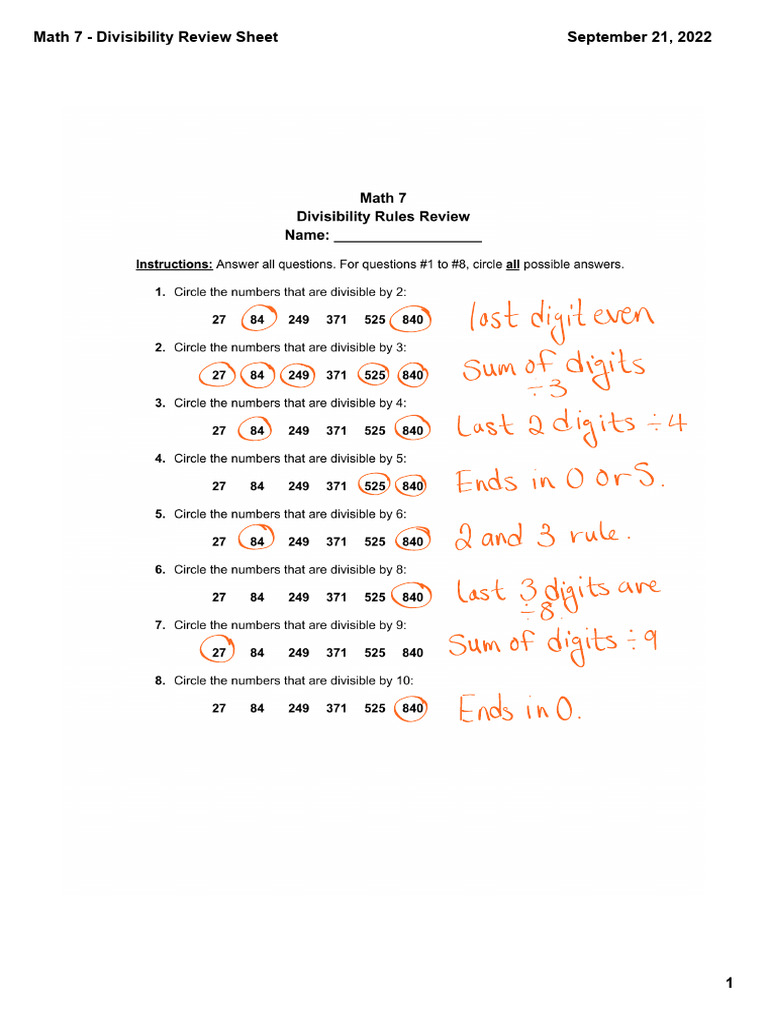 Math 7 - Divisibility Review Sheet September 21, 2022
Math 7
Divisibility Rules Review
Name: ___________________
Instructions: Answer all questions. For questions #1 to #8, circle all possible answers.
1. Circle the numbers that are divisible by 2:
27 84 249 371 525 840 last digit even
2. Circle the numbers that are divisible by 3:
27 84 249 371 525 840 Sum of digits
÷3
3. Circle the numbers that are divisible by 4:
27 84 249 371 525 840 Last 2 digits ÷4
4. Circle the numbers that are divisible by 5:
27 84 249 371 525 840 Ends in 0 or 5.
5. Circle the numbers that are divisible by 6:
27 84 249 371 525 840 2 and 3 rule.
6. Circle the numbers that are divisible by 8:
27 84 249 371 525 840 Last 3 digits are
÷8.
7. Circle the numbers that are divisible by 9:
27 84 249 371 525 840 Sum of digits ÷9
8. Circle the numbers that are divisible by 10:
27 84 249 371 525 840 Ends in 0.
1